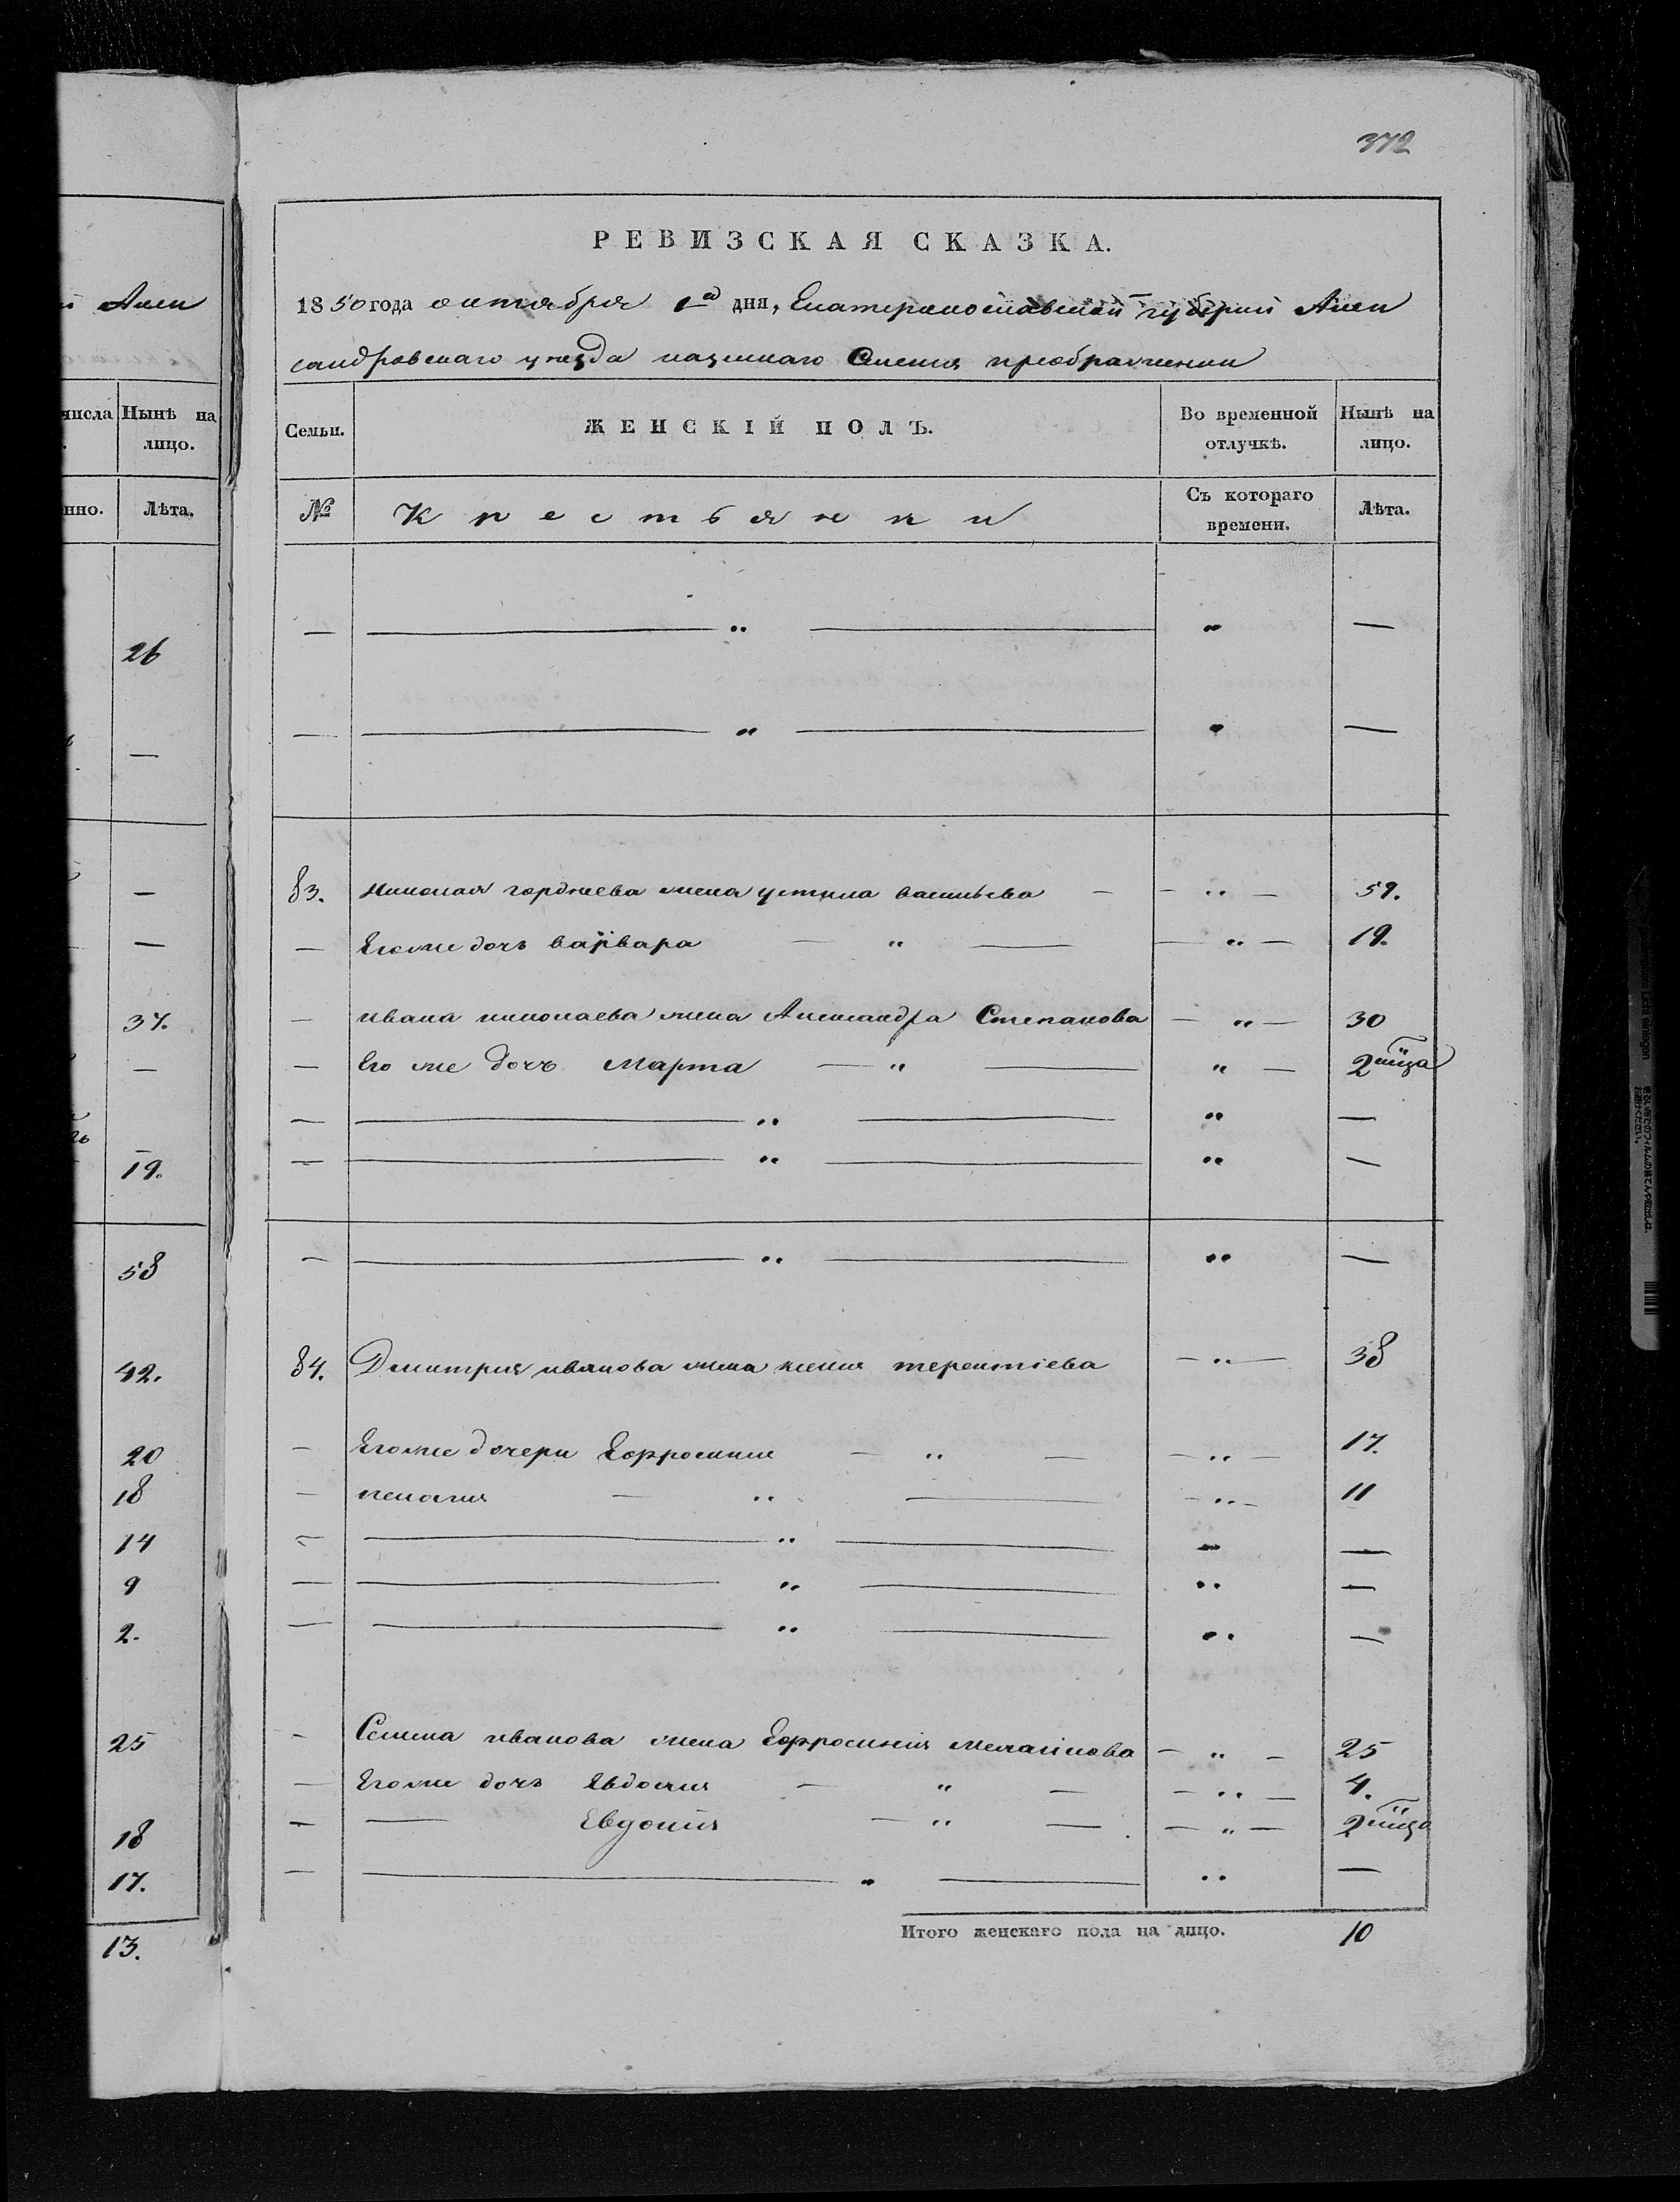 372
РЕВИЗСКАЯ СКАЗКА.
1850 года октября 1го дня, Екатеринославской губерніи Алек
сандровскаго уѣзда казеннаго Селенія преображенки
и Алек
числа Нынѣ на лицо.
нно. Лѣта.
Семьи. ЖЕНСКІЙ ПОЛЪ. Во временной отлучкѣ. Нынѣ на лицо.
№ Крестьянки Съ котораго времени. Лѣта.
26
—
— — " — " —
— — " — " —
—
—
37.
—
19.
83. николая гордѣева жена устина васильева — — " — 59.
— Егоже дочь варвара — " — — " — 19.
— ивана николаева жена Александра Степанова — " — 30
— Его же дочь Марта — " — " — 2 мца
— — " — " —
— — " — " —
58
— — " — " —
42.
84. Дмитрия иванова жена ксения терентіева — " — 38
20
18
14
9
2.
— Егоже дочери Ефросиния — " — — " — 17.
— пелагия — " — — " — 11
— — " — " —
— — " — " —
— — " — " —
25
18
17.
— Семена иванова жена Ефросиния — " — 25
— Егоже дочь Евдокия — " — — " — 4.
— — Евдокия — " — — " — 2 мца
— — " — " —
13.
Итого женскаго пола на лицо. 10